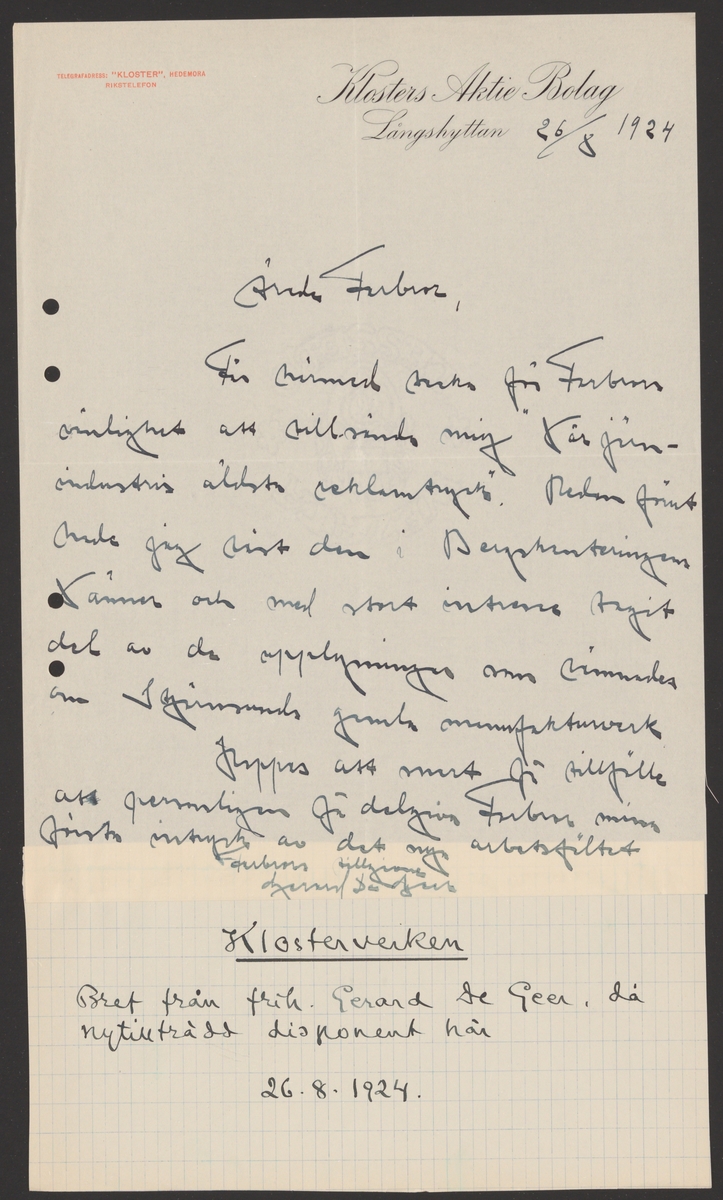 TELEGRAFADRESS: "KLOSTER", HEDEMORA
RIKSTELEFON
Klosters Aktie Bolag
Långshyttan 26/8 1924
Ärade Farbror,
Får härmed tacka för Farbrors
vänlighet att tillsända mig "Vår järn-
industris äldsta reklamtryck". Redan förut
hade jag läst den i Bergshanteringens
Vänner och med stort intresse tagit
del av de upplysningar som lämnades
om Stjärnsunds gamla manufakturverk
Hoppas att snart få tillfälle
att personligen få delgiva Farbror mina
första intryck av det nya arbetsfältet
Farbrors tillgivne
Gerard De Geer
Klosterverken
Bref från frih. Gerard De Geer, då
nytillträdd disponent här
26.8.1924.